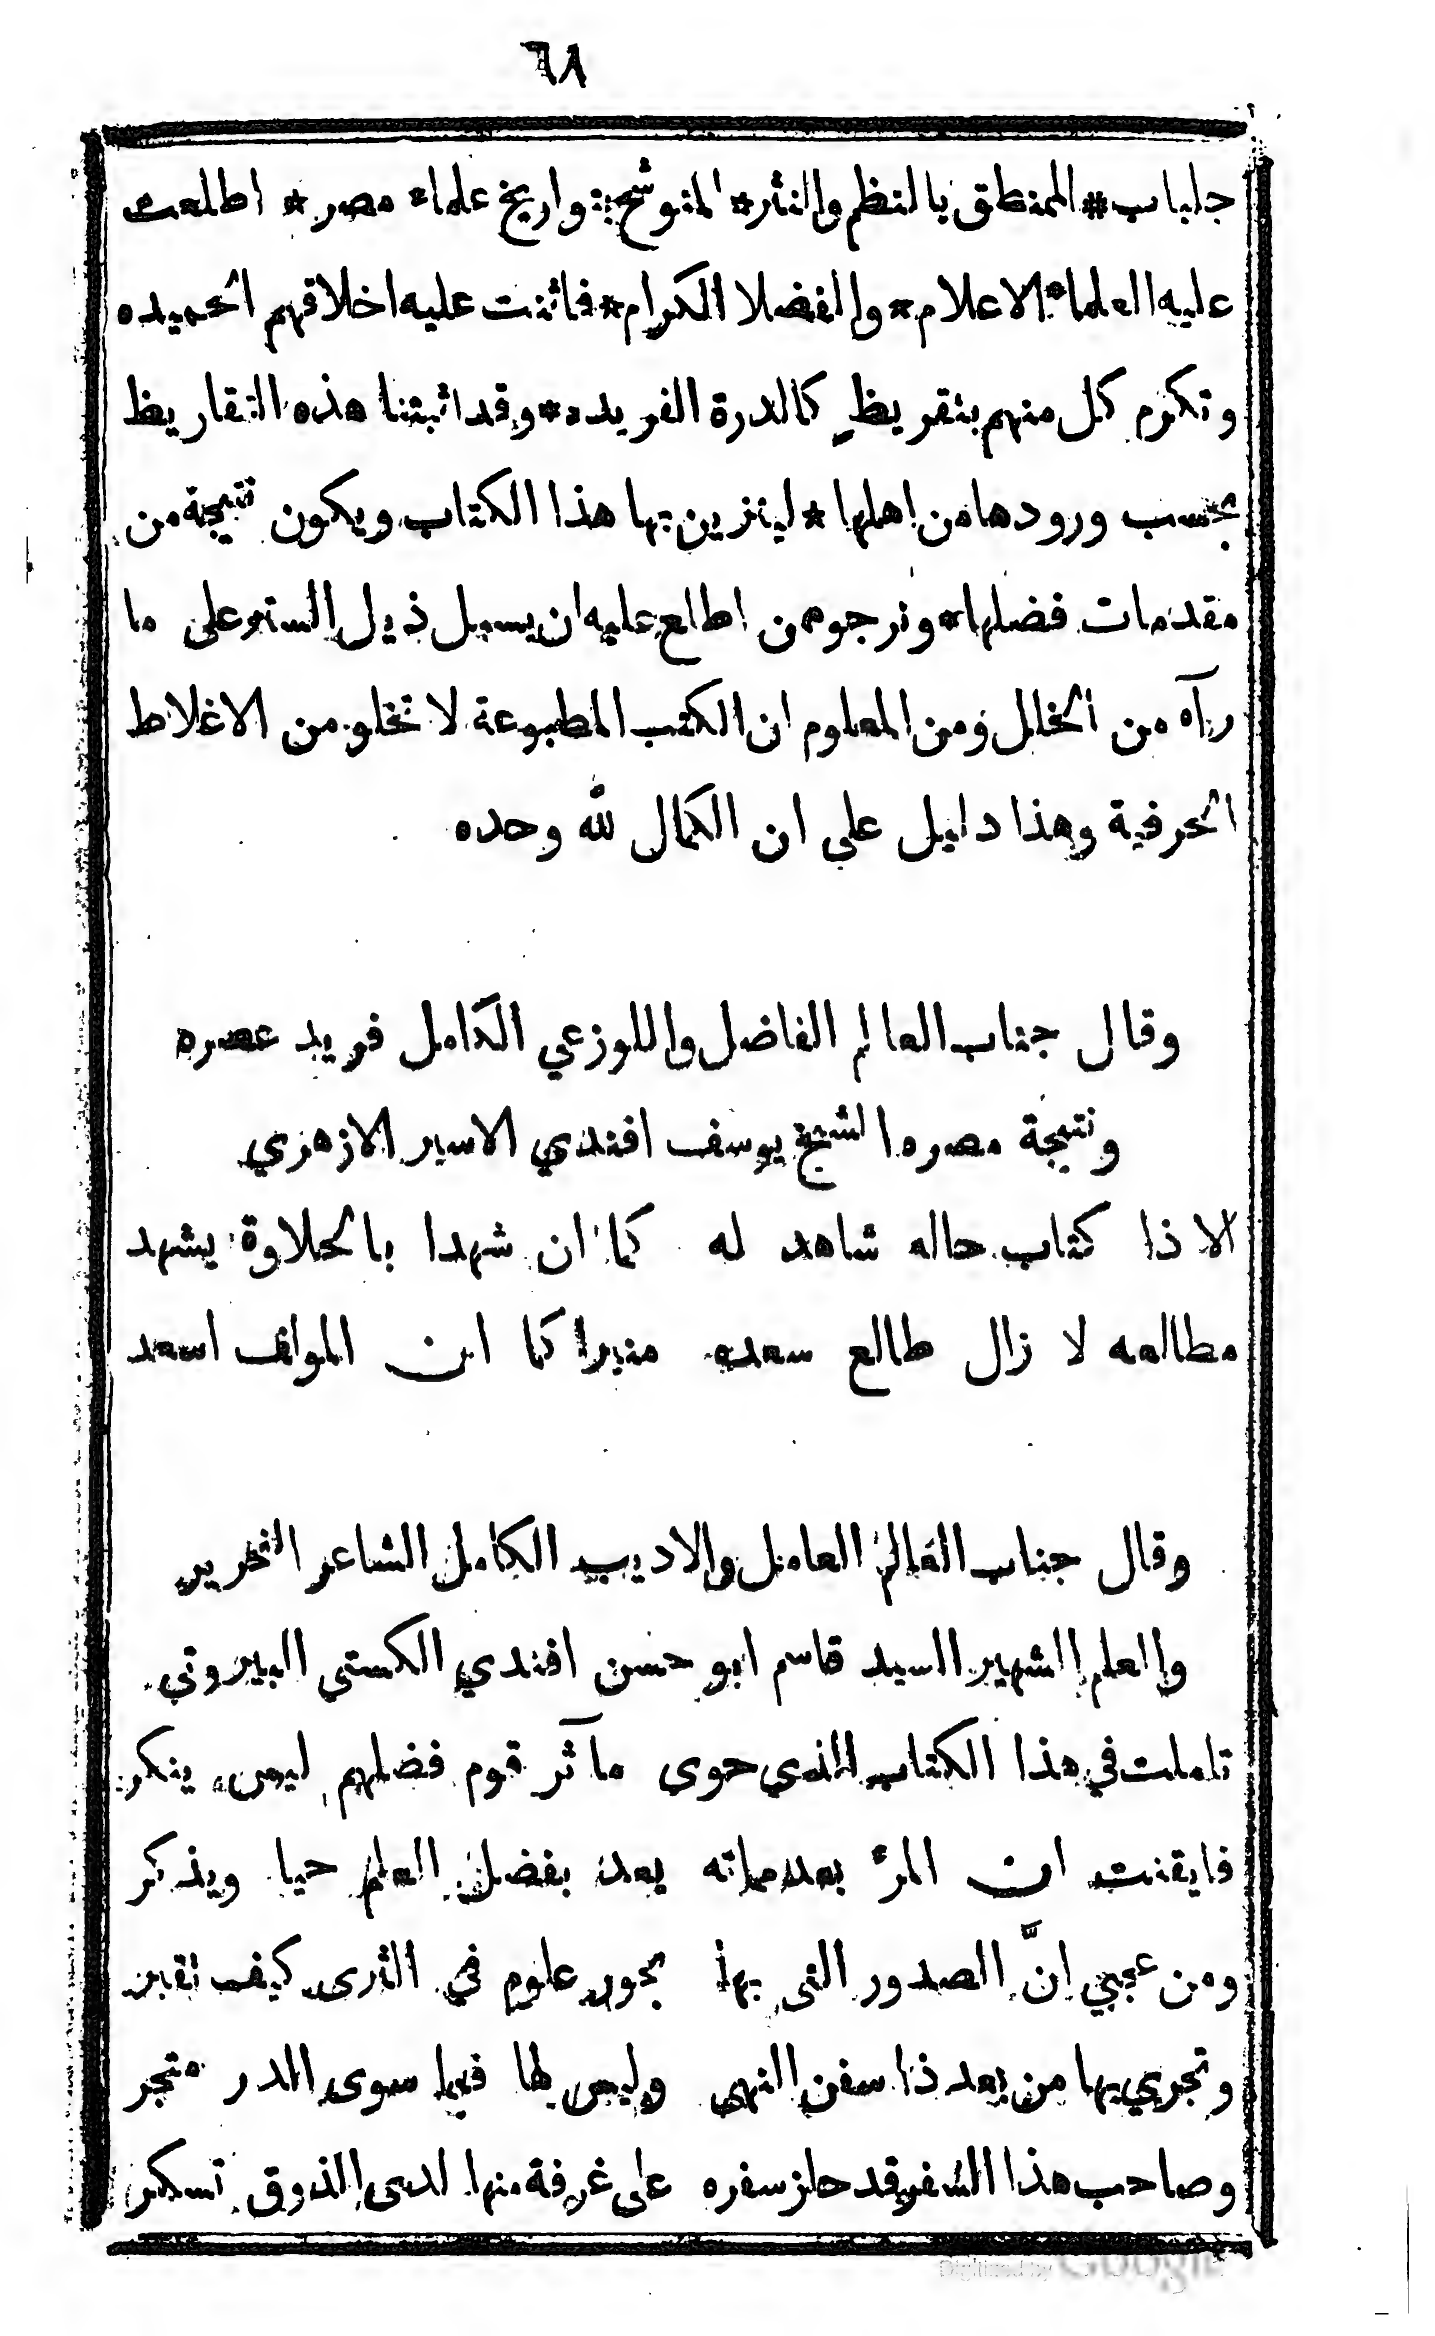 ٦٨
جلباب * المنطق بالنظم والنثر * المتوشح بتواريخ علماء مصر * اطلعت
عليه العلماء الاعلام * والفضلا الكرام * فاثنت عليه اخلاقهم الحميده
وتكرم كل منهم بتقريظٍ كالدرة الفريده * وقد اثبتنا هذه التقاريظ
بحسب ورودها من اهلها * ليتزين بها هذا الكتاب ويكون نتيجة من
مقدمات فضلها * ونرجو ممن اطلع عليه ان يسبل ذيل الستر على ما
رآه من الخلل ومن المعلوم ان الكتب المطبوعة لا تخلو من الاغلاط
الحرفية وهذا دليل على ان الكمال لله وحده
وقال جناب العالم الفاضل واللوزعي الكامل فريد عصره
ونتيجة مصره الشيخ يوسف افندي الاسير الازهري
الا ذا كتاب حاله شاهد له كما ان شهدا بالحلاوة يشهد
مطالعه لا زال طالع سعده منيرا كما ان المولف اسعد
وقال جناب العالم العامل والاديب الكامل الشاعر النحرير
والعلم الشهير السيد قاسم ابو حسن افندي الكستي البيروتي
تاملت في هذا الكتاب الذي حوى مآثر قوم فضلهم ليس ينكر
فايقنت ان المرء بعد مماته يعد بفضل العلم حيا ويذكر
ومن عجبي انَّ الصدور التي بها بحور علوم في الثرى كيف تقبر
وتجري بها من بعد ذا سفن النهى وليس لها فيها سوى الدر متجر
وصاحب هذا السفر قد حاز سفره على غرفة منها لدى الذوق تسكر
Digitized by Google